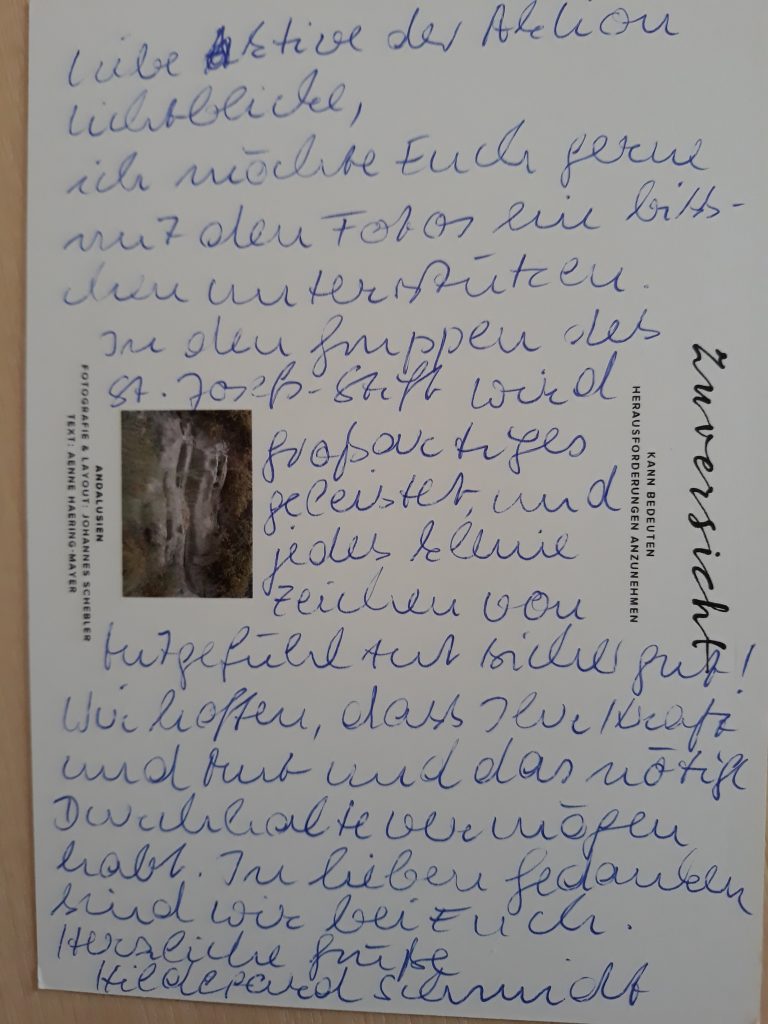 Liebe Aktive der Aktion
Lichtblicke,
ich möchte Euch gerne
mit den Fotos ein biss-
chen unterstützen.
In den Gruppen des
St. Josefs-Stift wird
großartiges
geleistet, und
jedes kleine
Zeichen von
Mitgefühl tut sicher gut!
Wir hoffen, dass Ihr Kraft
und Mut und das nötige
Durchhaltevermögen
habt. In lieben Gedanken
sind wir bei Euch.
Herzliche Grüße
Hildegard Schmidt
Zuversicht
KANN BEDEUTEN
HERAUSFORDERUNGEN ANZUNEHMEN
ANDALUSIEN
FOTOGRAFIE & LAYOUT: JOHANNES SCHEBLER
TEXT: AENNE HAERING-MAYER